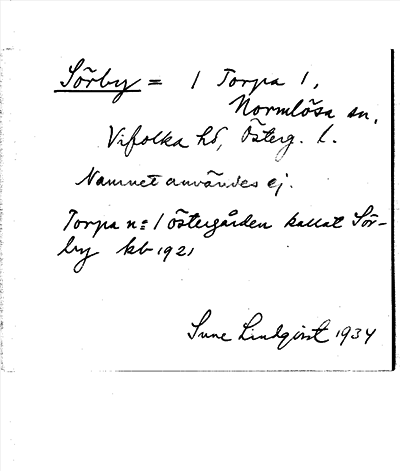 Sörby = 1 Torpa 1,
Normlösa sn,
Vifolka hd, Österg. l.
Namnet användes ej.
Torpa n:= 1 Östergården kallat Sör-
by kb 1921
Sune Lindqvist 1934